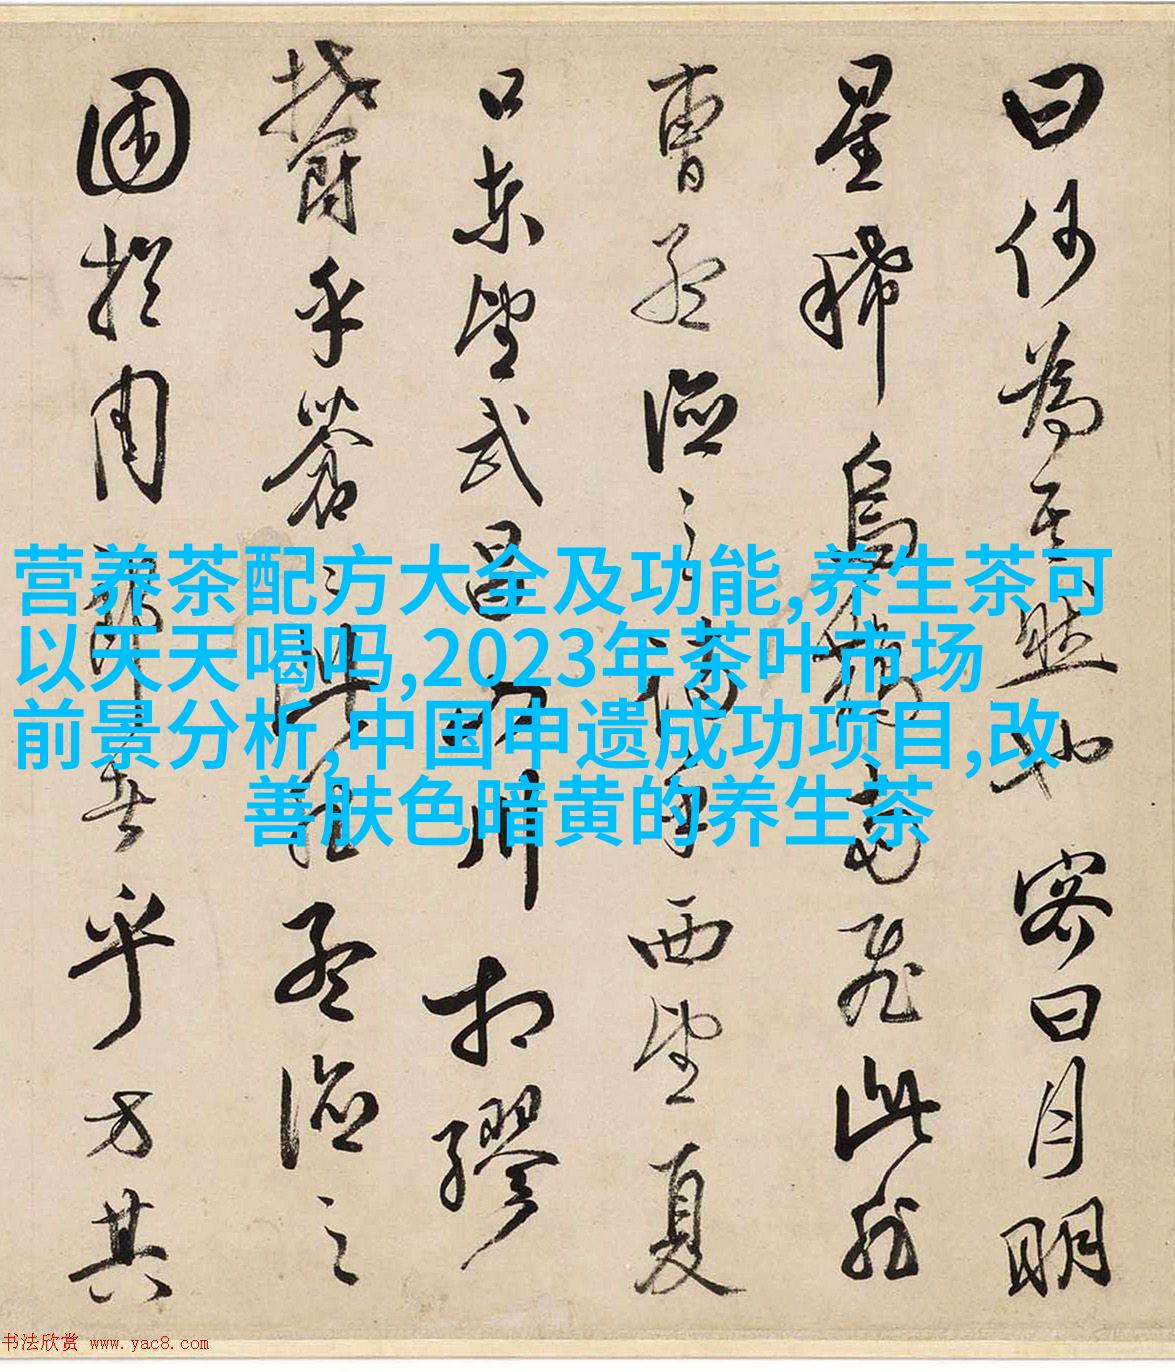 曰何為其然也客曰月明
星稀烏鵲南飛此非
曹孟德之詩乎西望夏
口東望武昌山川相繆
鬱乎蒼〻此非孟德之
困於周郎者乎方其
营养茶配方大全及功能,养生茶可
以天天喝吗,2023年茶叶市场
前景分析,中国申遗成功项目,改
善肤色暗黄的养生茶
书法欣赏 www.yac8.com